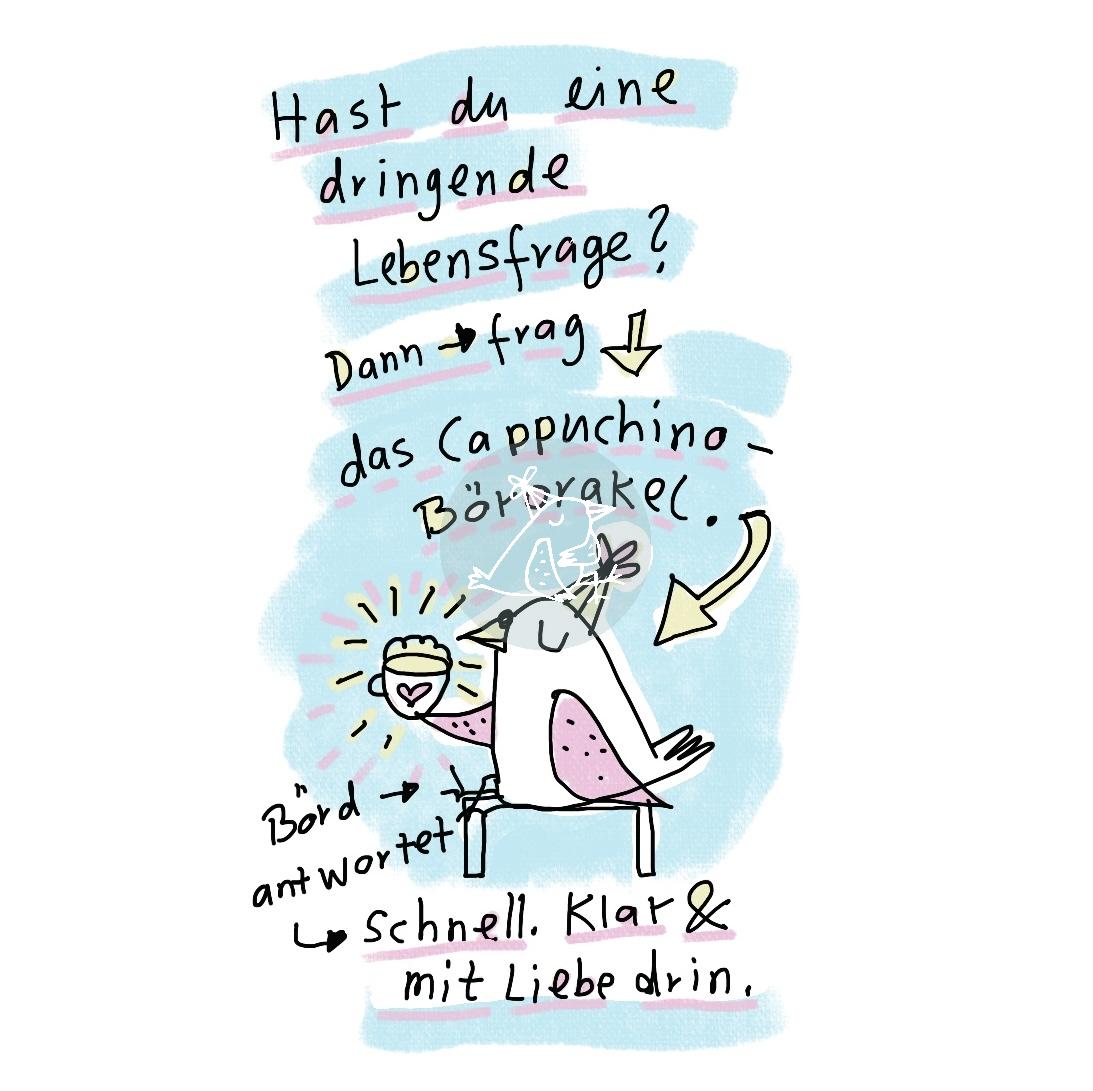 Hast du eine
dringende
Lebensfrage?
Dann → frag
das Cappuchino -
Börorakel.
Börd →
antwortet
↳ schnell. Klar &
mit Liebe drin.